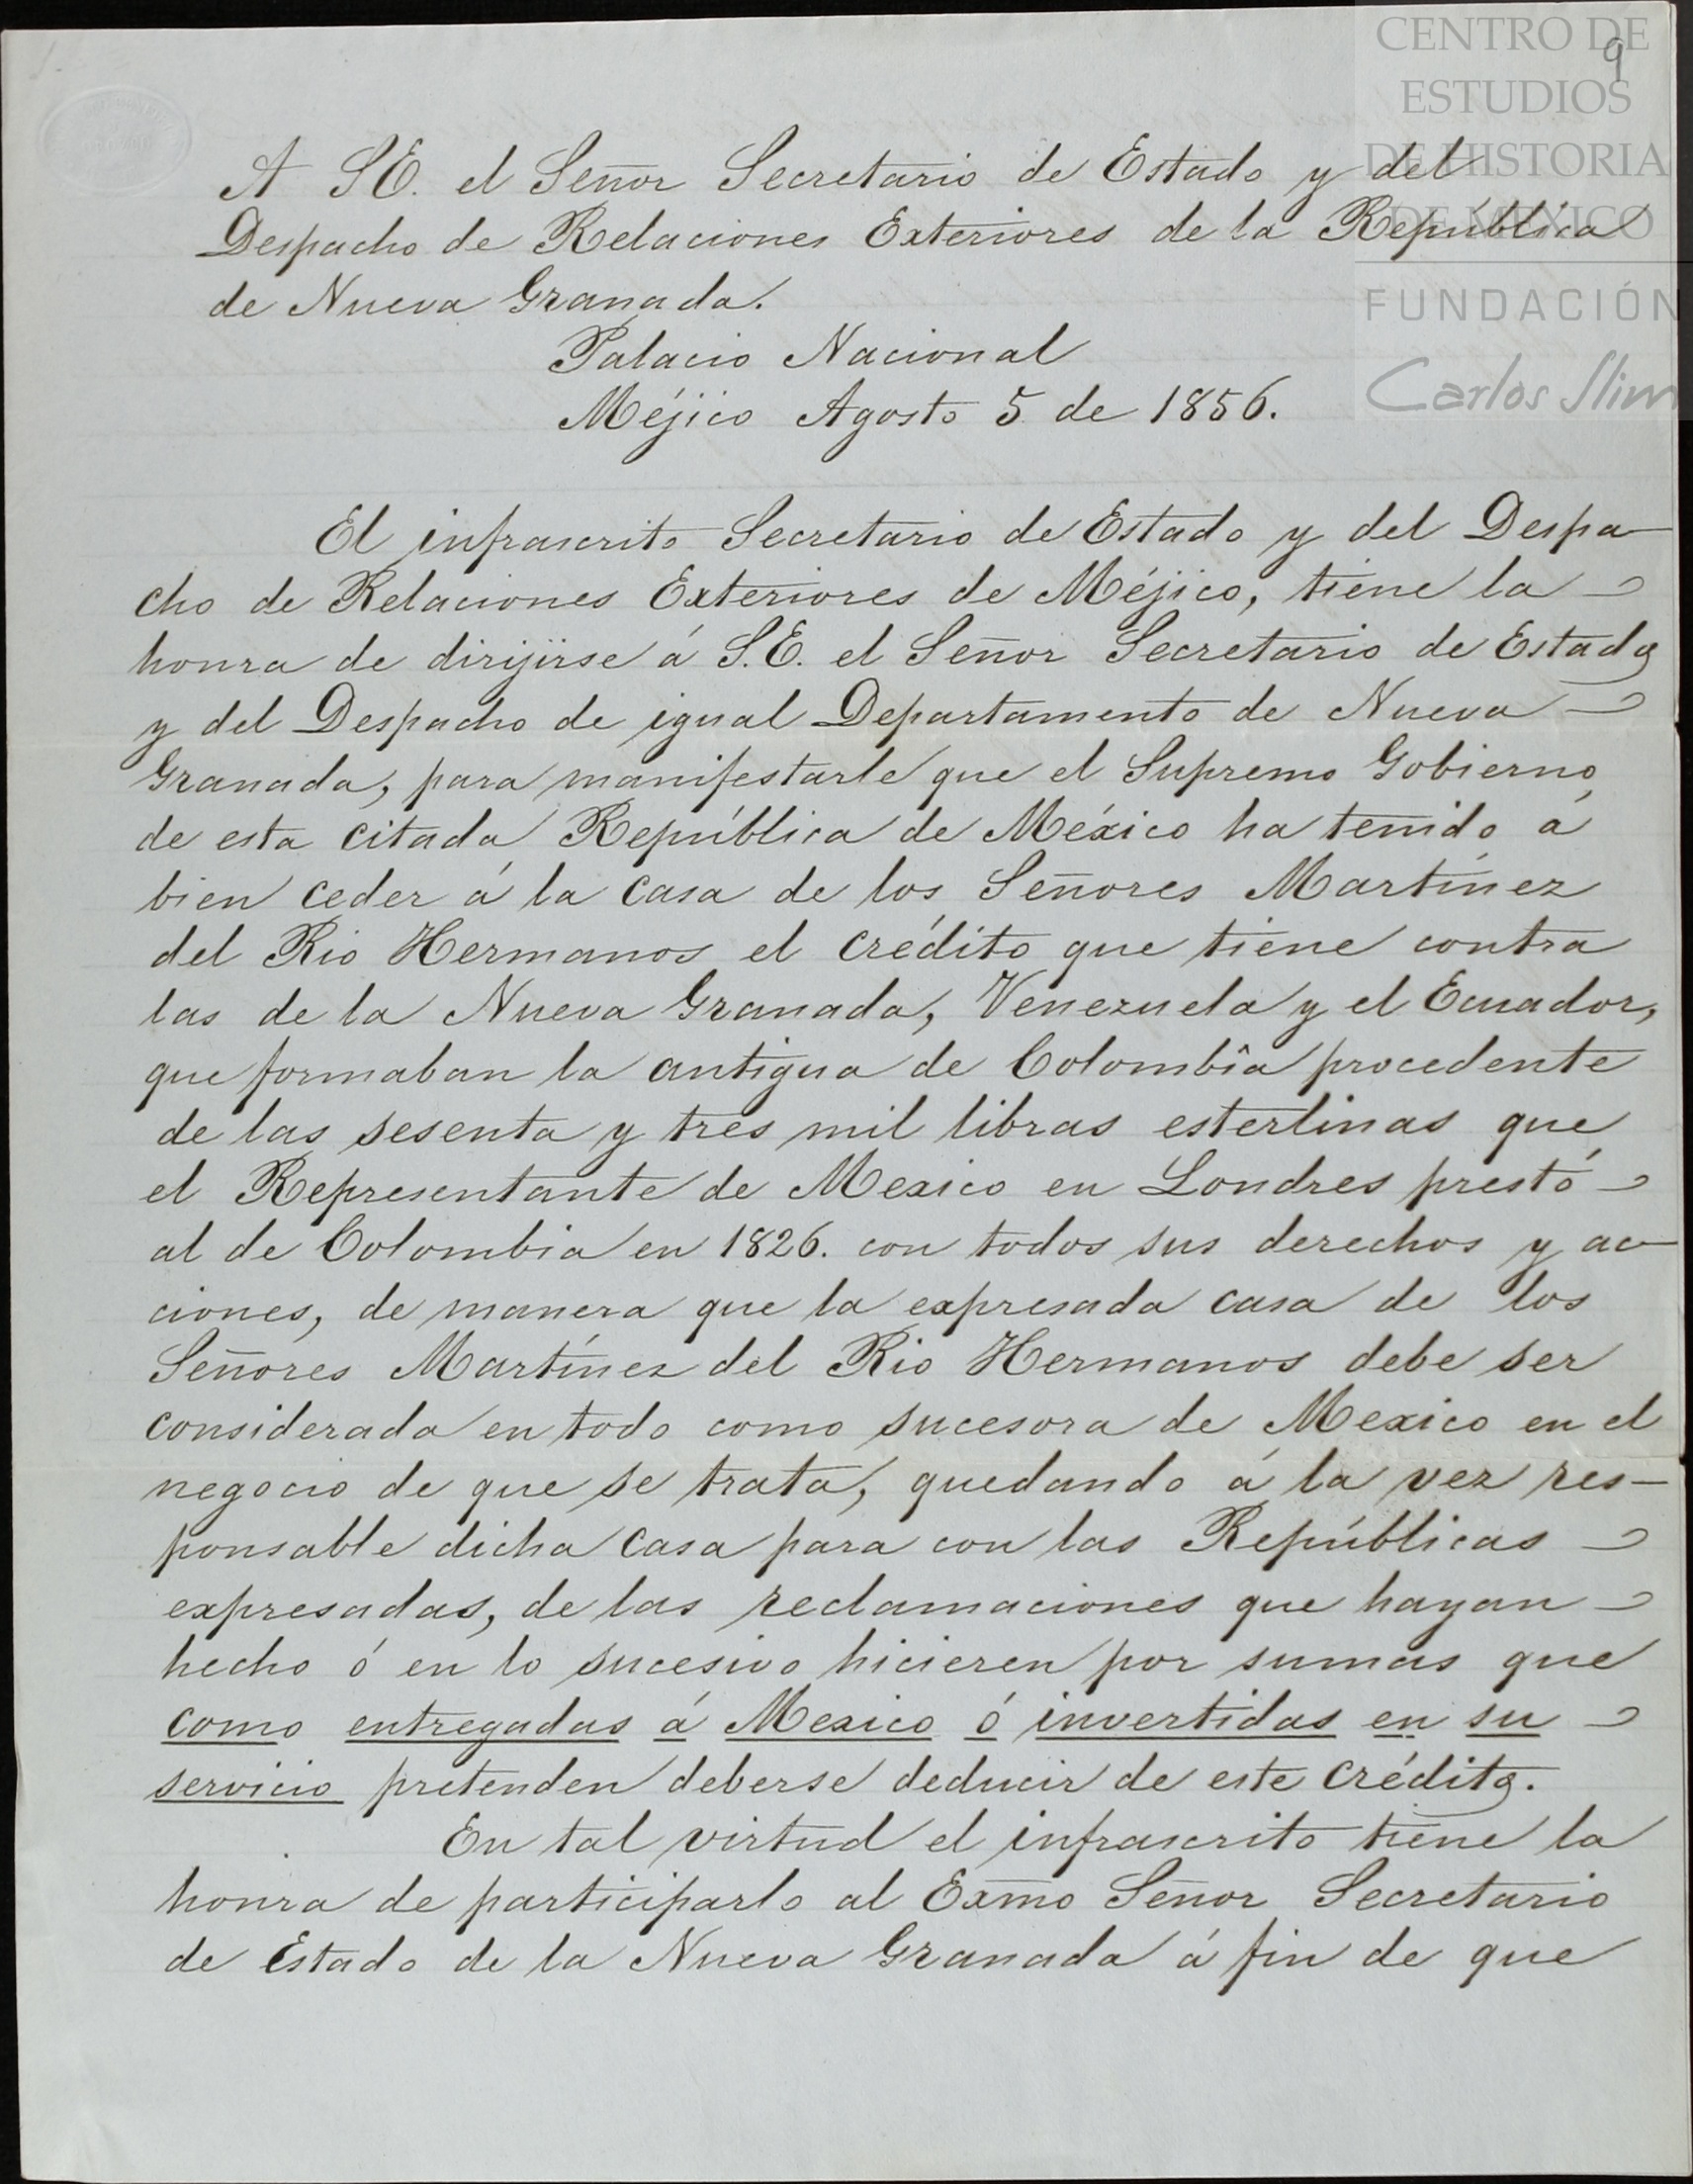 CENTRO DE
ESTUDIOS
DE HISTORIA
DE MÉXICO
FUNDACIÓN
Carlos Slim
9
A SE. el Señor Secretario de Estado y del
Despacho de Relaciones Exteriores de la República
de Nueva Granada.
Palacio Nacional
Méjico Agosto 5 de 1856.
El infrascrito Secretario de Estado y del Despa-
cho de Relaciones Exteriores de Méjico, tiene la
honra de dirijirse á S.E. el Señor Secretario de Estado
y del Despacho de igual Departamento de Nueva
Granada, para manifestarle que el Supremo Gobierno
de esta citada República de México ha tenido á
bien ceder á la casa de los Señores Martínez
del Rio Hermanos el crédito que tiene contra
las de la Nueva Granada, Venezuela y el Ecuador,
que formaban la antigua de Colombia procedente
de las sesenta y tres mil libras esterlinas que
el Representante de Mexico en Londres prestó
al de Colombia en 1826. con todos sus derechos y ac-
ciones, de manera que la expresada casa de los
Señores Martínez del Rio Hermanos debe ser
considerada en todo como sucesora de Mexico en el
negocio de que se trata, quedando á la vez res-
ponsable dicha casa para con las Repúblicas
expresadas, de las reclamaciones que hayan
hecho ó en lo sucesivo hicieren por sumas que
como entregadas á Mexico ó invertidas en su
servicio pretenden deberse deducir de este crédito.
En tal virtud el infrascrito tiene la
honra de participarlo al Exmo Señor Secretario
de Estado de la Nueva Granada á fin de que